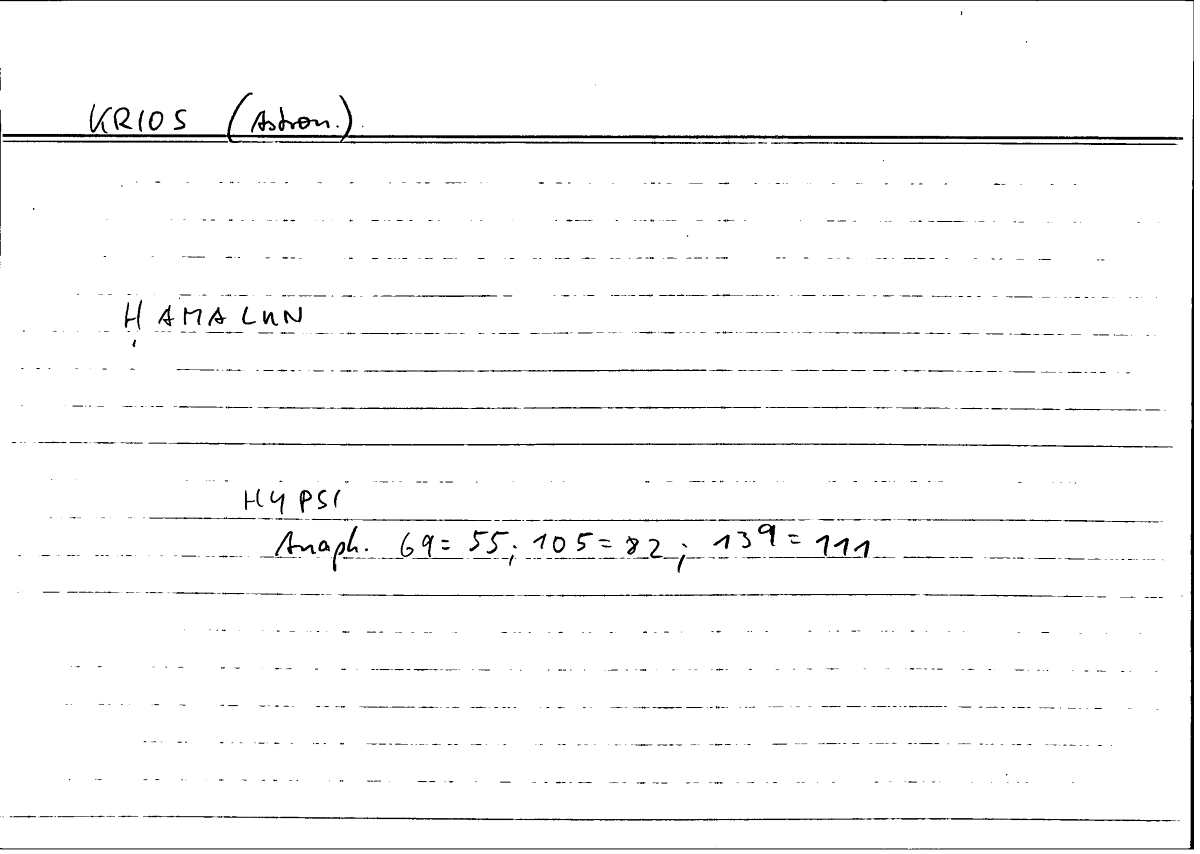 KRIOS (Astron.)
ḤAMALUN
HYPSI
Anaph. 69=55; 105=82; 139=111